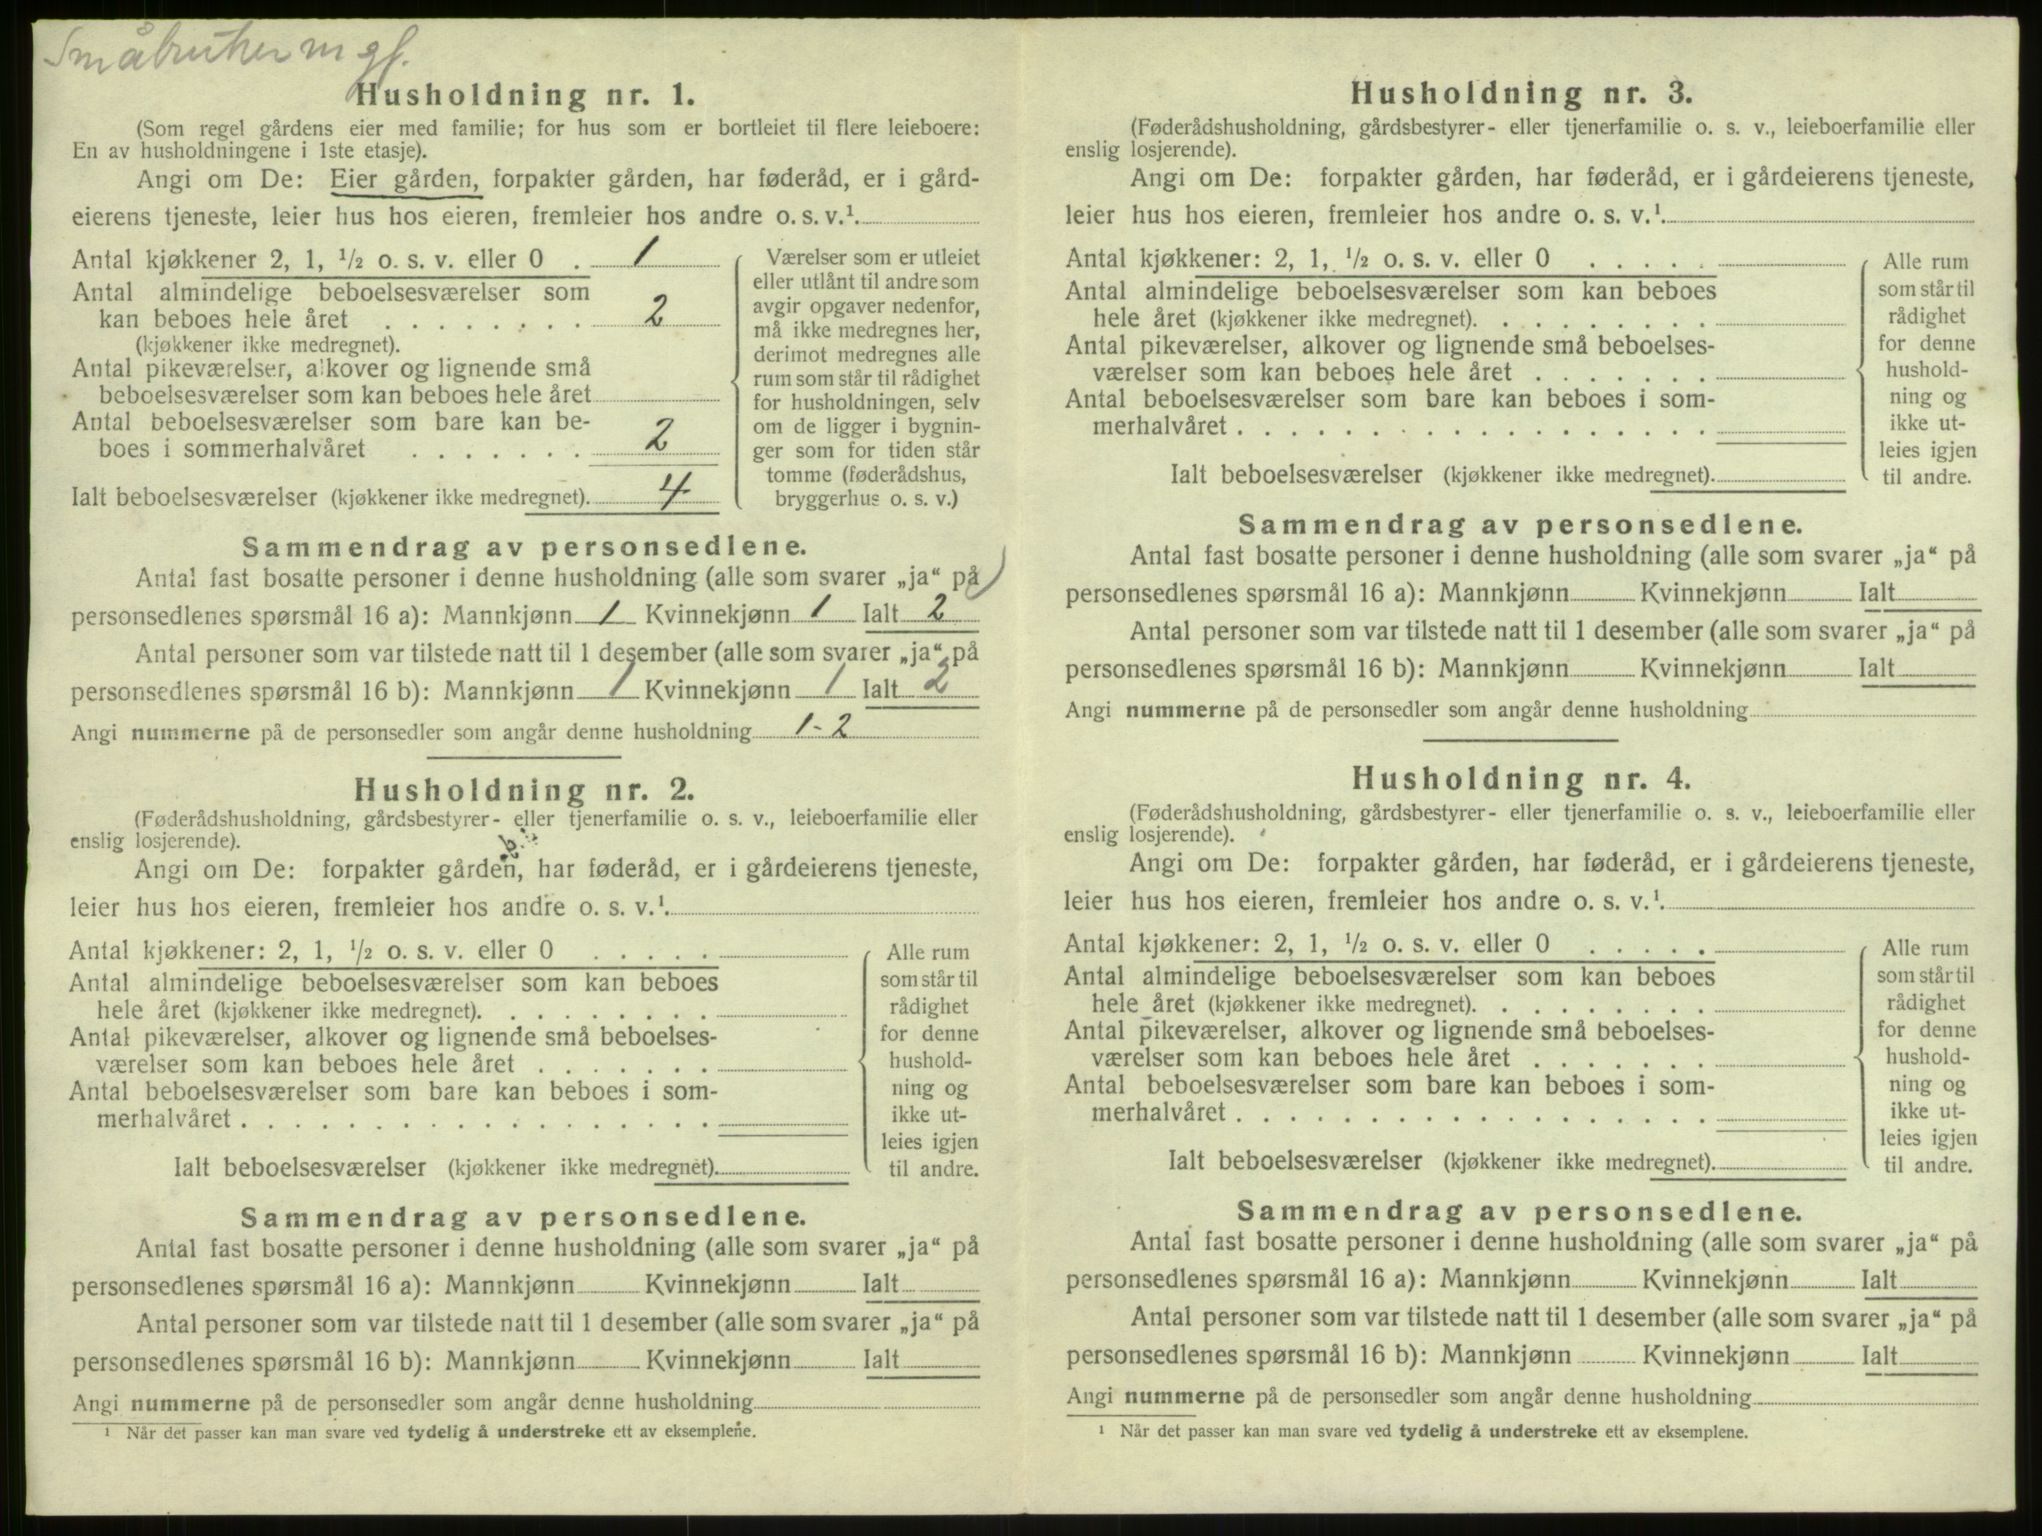 Småbruker m gf.
Husholdning nr. 1.
(Som regel gårdens eier med familie; for hus som er bortleiet til flere leieboere:
En av husholdningene i 1ste etasje).
Angi om De: Eier gården, forpakter gården, har føderåd, er i gård-
eierens tjeneste, leier hus hos eieren, fremleier hos andre o. s. v.¹.
Antal kjøkkener 2, 1, ½ o. s. v. eller 0 . 1
Antal almindelige beboelsesværelser som
kan beboes hele året . . . . . . . . 2
(kjøkkener ikke medregnet).
Antal pikeværelser, alkover og lignende små
beboelsesværelser som kan beboes hele året
Antal beboelsesværelser som bare kan be-
boes i sommerhalvåret . . . . . . . 2
Ialt beboelsesværelser (kjøkkener ikke medregnet). 4
Værelser som er utleiet
eller utlånt til andre som
avgir opgaver nedenfor,
må ikke medregnes her,
derimot medregnes alle
rum som står til rådighet
for husholdningen, selv
om de ligger i bygnin-
ger som for tiden står
tomme (føderådshus,
bryggerhus o. s. v.)
Sammendrag av personsedlene.
Antal fast bosatte personer i denne husholdning (alle som svarer „ja“ på
personsedlenes spørsmål 16 a): Mannkjønn 1 Kvinnekjønn 1 Ialt 2
Antal personer som var tilstede natt til 1 desember (alle som svarer „ja“ på
personsedlenes spørsmål 16 b): Mannkjønn 1 Kvinnekjønn 1 Ialt 2
Angi nummerne på de personsedler som angår denne husholdning 1-2
Husholdning nr. 2.
(Føderådshusholdning, gårdsbestyrer- eller tjenerfamilie o. s. v., leieboerfamilie eller
enslig losjerende).
Angi om De: forpakter gården, har føderåd, er i gårdeierens tjeneste,
leier hus hos eieren, fremleier hos andre o. s. v.¹.
Antal kjøkkener: 2, 1, ½ o. s. v. eller 0 . . . . .
Antal almindelige beboelsesværelser som kan beboes
hele året (kjøkkener ikke medregnet). . . . . . . . .
Antal pikeværelser, alkover og lignende små beboelses-
værelser som kan beboes hele året . . . . . . .
Antal beboelsesværelser som bare kan beboes i som-
merhalvåret . . . . . . . . . . . . . . . . . .
Ialt beboelsesværelser (kjøkkener ikke medregnet).
Alle rum
som står til
rådighet
for denne
hushold-
ning og
ikke ut-
leies igjen
til andre.
Sammendrag av personsedlene.
Antal fast bosatte personer i denne husholdning (alle som svarer „ja“ på
personsedlenes spørsmål 16 a): Mannkjønn Kvinnekjønn Ialt
Antal personer som var tilstede natt til 1 desember (alle som svarer „ja“ på
personsedlenes spørsmål 16 b): Mannkjønn Kvinnekjønn Ialt
Angi nummerne på de personsedler som angår denne husholdning
¹ Når det passer kan man svare ved tydelig å understreke ett av eksemplene.
Husholdning nr. 3.
(Føderådshusholdning, gårdsbestyrer- eller tjenerfamilie o. s. v., leieboerfamilie eller
enslig losjerende).
Angi om De: forpakter gården, har føderåd, er i gårdeierens tjeneste,
leier hus hos eieren, fremleier hos andre o. s. v.¹.
Antal kjøkkener: 2, 1, ½ o. s. v. eller 0 . . . . .
Antal almindelige beboelsesværelser som kan beboes
hele året (kjøkkener ikke medregnet). . . . . . . . .
Antal pikeværelser, alkover og lignende små beboelses-
værelser som kan beboes hele året . . . . . . .
Antal beboelsesværelser som bare kan beboes i som-
merhalvåret . . . . . . . . . . . . . . . . . .
Ialt beboelsesværelser (kjøkkener ikke medregnet).
Alle rum
som står til
rådighet
for denne
hushold-
ning og
ikke ut-
leies igjen
til andre.
Sammendrag av personsedlene.
Antal fast bosatte personer i denne husholdning (alle som svarer „ja“ på
personsedlenes spørsmål 16 a): Mannkjønn Kvinnekjønn Ialt
Antal personer som var tilstede natt til 1 desember (alle som svarer „ja“ på
personsedlenes spørsmål 16 b): Mannkjønn Kvinnekjønn Ialt
Angi nummerne på de personsedler som angår denne husholdning
Husholdning nr. 4.
(Føderådshusholdning, gårdsbestyrer- eller tjenerfamilie o. s. v., leieboerfamilie eller
enslig losjerende).
Angi om De: forpakter gården, har føderåd, er i gårdeierens tjeneste,
leier hus hos eieren, fremleier hos andre o. s. v.¹.
Antal kjøkkener: 2, 1, ½ o. s. v. eller 0 . . . . .
Antal almindelige beboelsesværelser som kan beboes
hele året (kjøkkener ikke medregnet). . . . . . . . .
Antal pikeværelser, alkover og lignende små beboelses-
værelser som kan beboes hele året . . . . . . .
Antal beboelsesværelser som bare kan beboes i som-
merhalvåret . . . . . . . . . . . . . . . . . .
Ialt beboelsesværelser (kjøkkener ikke medregnet).
Alle rum
som står til
rådighet
for denne
hushold-
ning og
ikke ut-
leies igjen
til andre.
Sammendrag av personsedlene.
Antal fast bosatte personer i denne husholdning (alle som svarer „ja“ på
personsedlenes spørsmål 16 a): Mannkjønn Kvinnekjønn Ialt
Antal personer som var tilstede natt til 1 desember (alle som svarer „ja“ på
personsedlenes spørsmål 16 b): Mannkjønn Kvinnekjønn Ialt
Angi nummerne på de personsedler som angår denne husholdning
¹ Når det passer kan man svare ved tydelig å understreke ett av eksemplene.